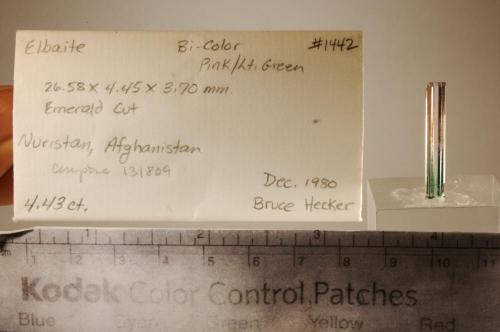 Elbaite Bi-Color #1442
Pink/Lt. Green
26.58 x 4.45 x 3.70 mm.
Emerald Cut
Nuristan, Afghanistan
131809
Dec. 1980
4.43 ct. Bruce Hecker
1 2 3 4 5
1 2 3 4 5 6 7 8 9 10 11
Kodak Color Control Patches
Blue Cyan Green Yellow Red